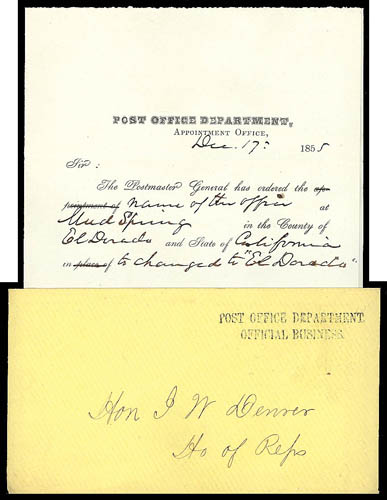 POST OFFICE DEPARTMENT,
APPOINTMENT OFFICE,
Dec. 17: 1855
Sir:
The Postmaster General has ordered the ap-
pointment of name of the office at
Mud Spring in the County of
El Dorado and State of California
in place of to changed to "El Dorado".
POST OFFICE DEPARTMENT.
OFFICIAL BUSINESS.
Hon J W Denver
Ho of Reps